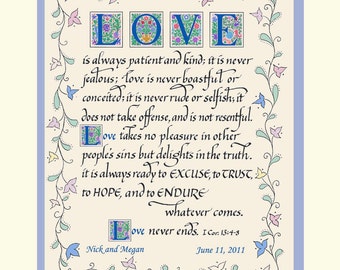 LOVE
is always patient and kind; it is never
jealous; love is never boastful or
conceited; it is never rude or selfish; it
does not take offense, and is not resentful.
Love takes no pleasure in other
people's sins but delights in the truth.
It is always ready to EXCUSE, to TRUST,
to HOPE, and to ENDURE
whatever comes.
Love never ends. I Cor. 13:4-8
Nick and Megan June 11, 2011